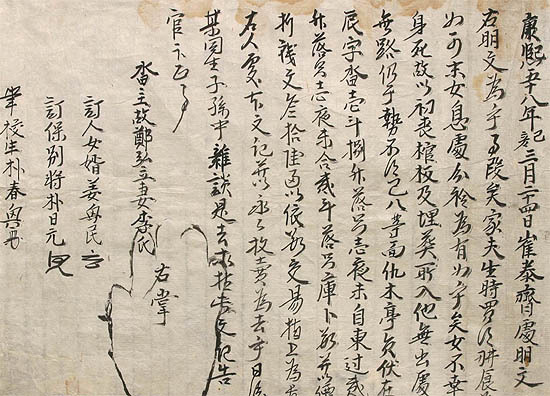 康熙五十八年己三月二十四日崔泰齊處明文
右明文為乎事段矣家夫生時買得耕
如可末女息處分衿為有如乎矣女不幸
身死故以初喪棺板及埋葬所入他無出處
無路仍于勢不得已八等面仇木亭員伏在
辰字畓壹斗捌升落只夜未自東過貳
升落只夜未合貳斗落只庫
折錢文叁拾陸以依數交易捧上為
右人處本文記幷以永永放賣為去乎日後
某同生子孫中雜談是去等持此文記告
官卞正事
畓主故鄭妻李氏
右掌
訂人女婿姜民
訂保別將朴日元
筆校生朴春興